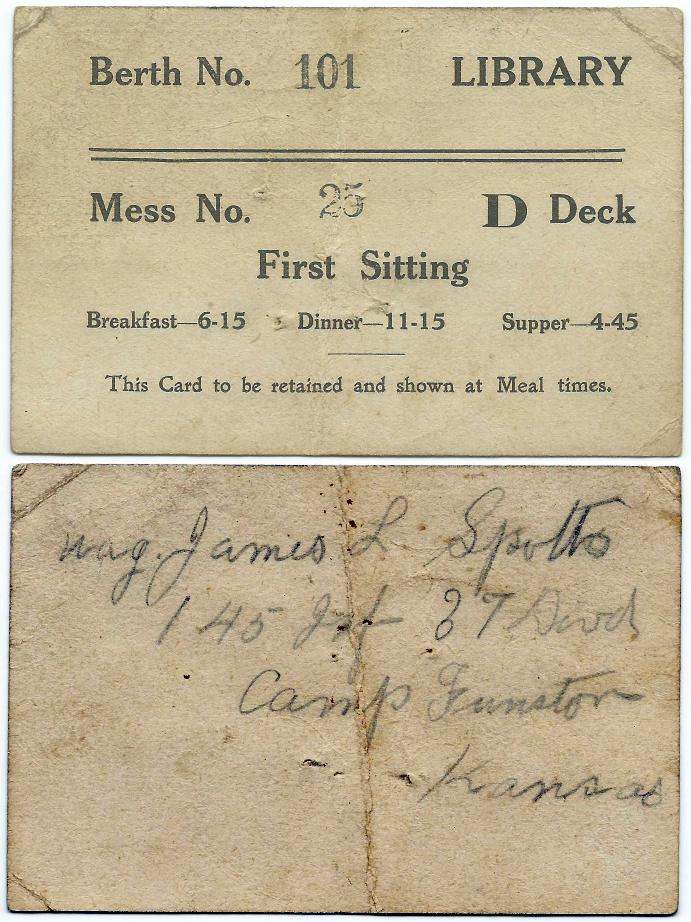 Berth No. 101 LIBRARY
Mess No. 25 D Deck
First Sitting
Breakfast—6-15 Dinner—11-15 Supper—4-45
This Card to be retained and shown at Meal times.
Wag. James L Spotts
145 Inf 37 Divd
Camp Funston
Kansas